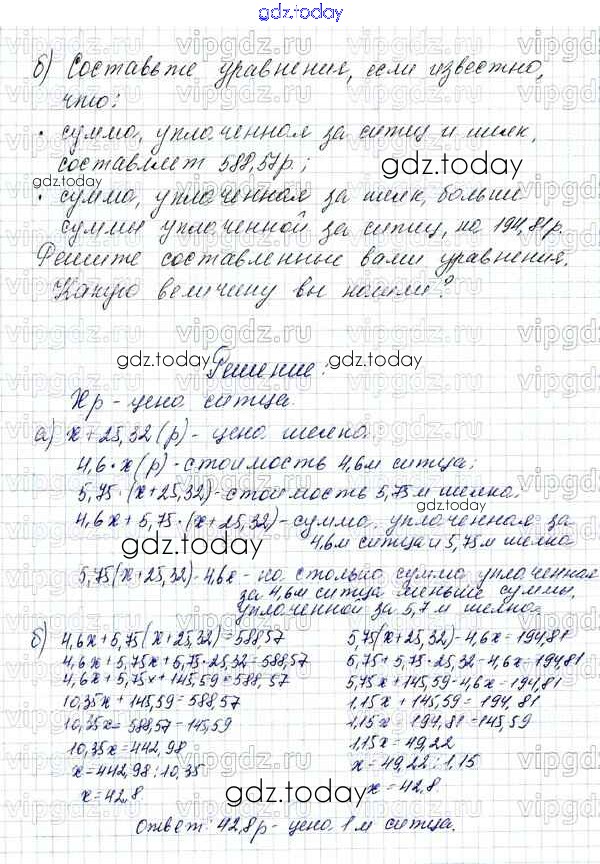 gdz.today
б) Составьте уравнения, если известно,
что:
• сумма, уплаченная за ситец и шёлк,
составляет 588,57 р.;
gdz.today
gdz.today
• сумма, уплаченная за шёлк, больше
суммы уплаченной за ситец, на 194,81 р.
Решите составленные вами уравнения.
Какую величину вы нашли?
gdz.today
gdz.today
Решение:
х р - цена ситца.
а) х + 25,32 (р) - цена шёлка.
4,6 · х (р) - стоимость 4,6 м ситца;
5,75 · (х + 25,32) - стоимость 5,75 м шёлка.
4,6х + 5,75 · (х + 25,32) - сумма, уплаченная за
4,6 м ситца и 5,75 м шёлка
gdz.today
5,75(х + 25,32) - 4,6х - на столько сумма уплаченная
за 4,6 м ситца меньше суммы,
уплаченной за 5,7 м шёлка.
б) 4,6х + 5,75(х + 25,32) = 588,57
4,6х + 5,75х + 5,75·25,32 = 588,57
4,6х + 5,75х + 145,59 = 588,57
10,35х + 145,59 = 588,57
10,35х = 588,57 - 145,59
10,35х = 442,98
х = 442,98 : 10,35
х = 42,8.
5,75(х + 25,32) - 4,6х = 194,81
5,75 + 5,75·25,32 - 4,6х = 194,81
5,75х + 145,59 - 4,6х = 194,81
1,15х + 145,59 = 194,81
1,15х = 194,81 - 145,59
1,15х = 49,22
х = 49,22 : 1,15
х = 42,8.
gdz.today
Ответ: 42,8 р - цена 1 м ситца.